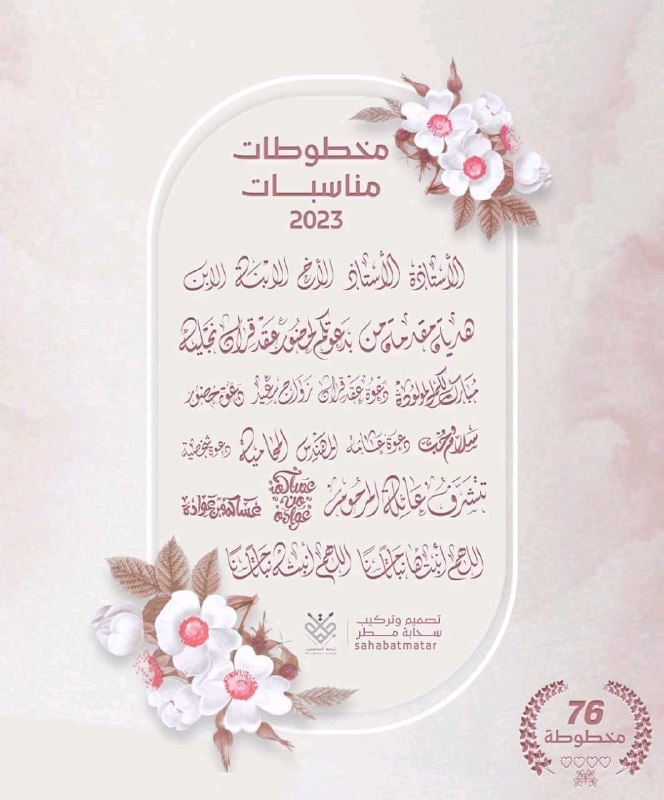 مخطوطات
مناسبات
2023
الأستاذة الأستاذ الأخ الابنة الابن
هدية مقدمة من بدعوتكم لحضور عقد قران نجليه
مبارك لكم المولودة دعوة عقد قران زواج سعيد دعوة حضور
سلام وحب دعوة عامة المهندس المحامية دعوة شخصية
تتشرف عائلة المرحوم عساكم من عوادة عساكم من عوادة
اللهم أنبتها نباتا حسنا اللهم أنبته نباتا حسنا
تصميم وتركيب
سحابة مطر
sahabatmatar
76
مخطوطة